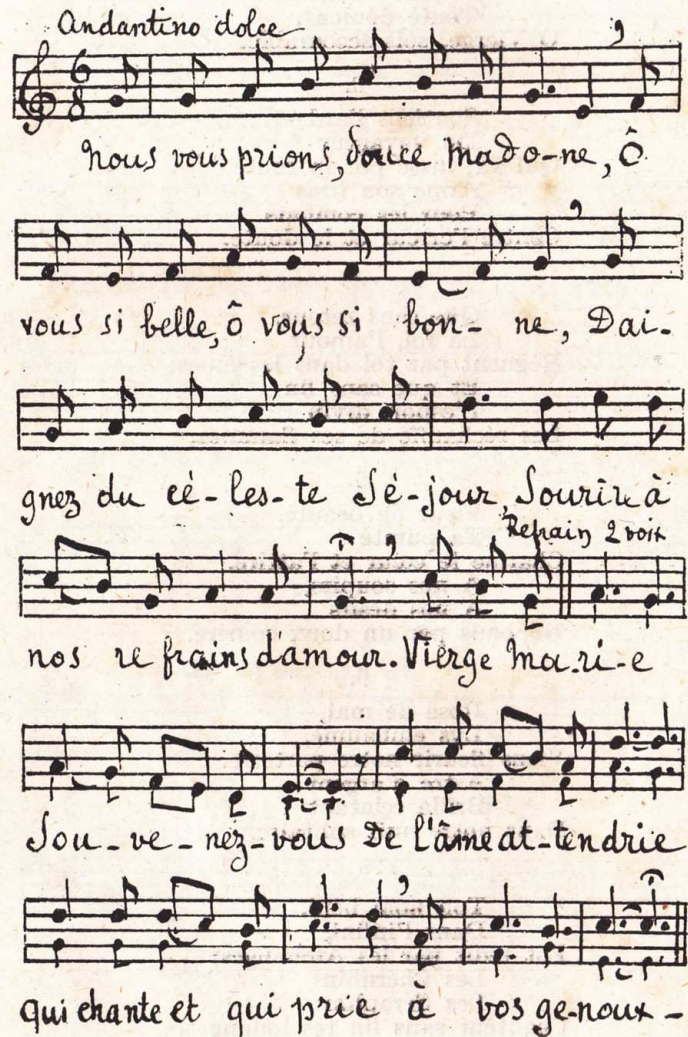 Andantino dolce
6
8
Nous vous prions, douce Mado-ne, Ô
vous si belle, ô vous si bon- ne, Dai-
gnez du cé-les-te Sé-jour Sourire à
Refrain 2 voix
nos re frains d'amour. Vierge Ma-ri-e
Sou-ve-nez-vous De l'âme at-tendrie
qui chante et qui prie à vos ge-noux-